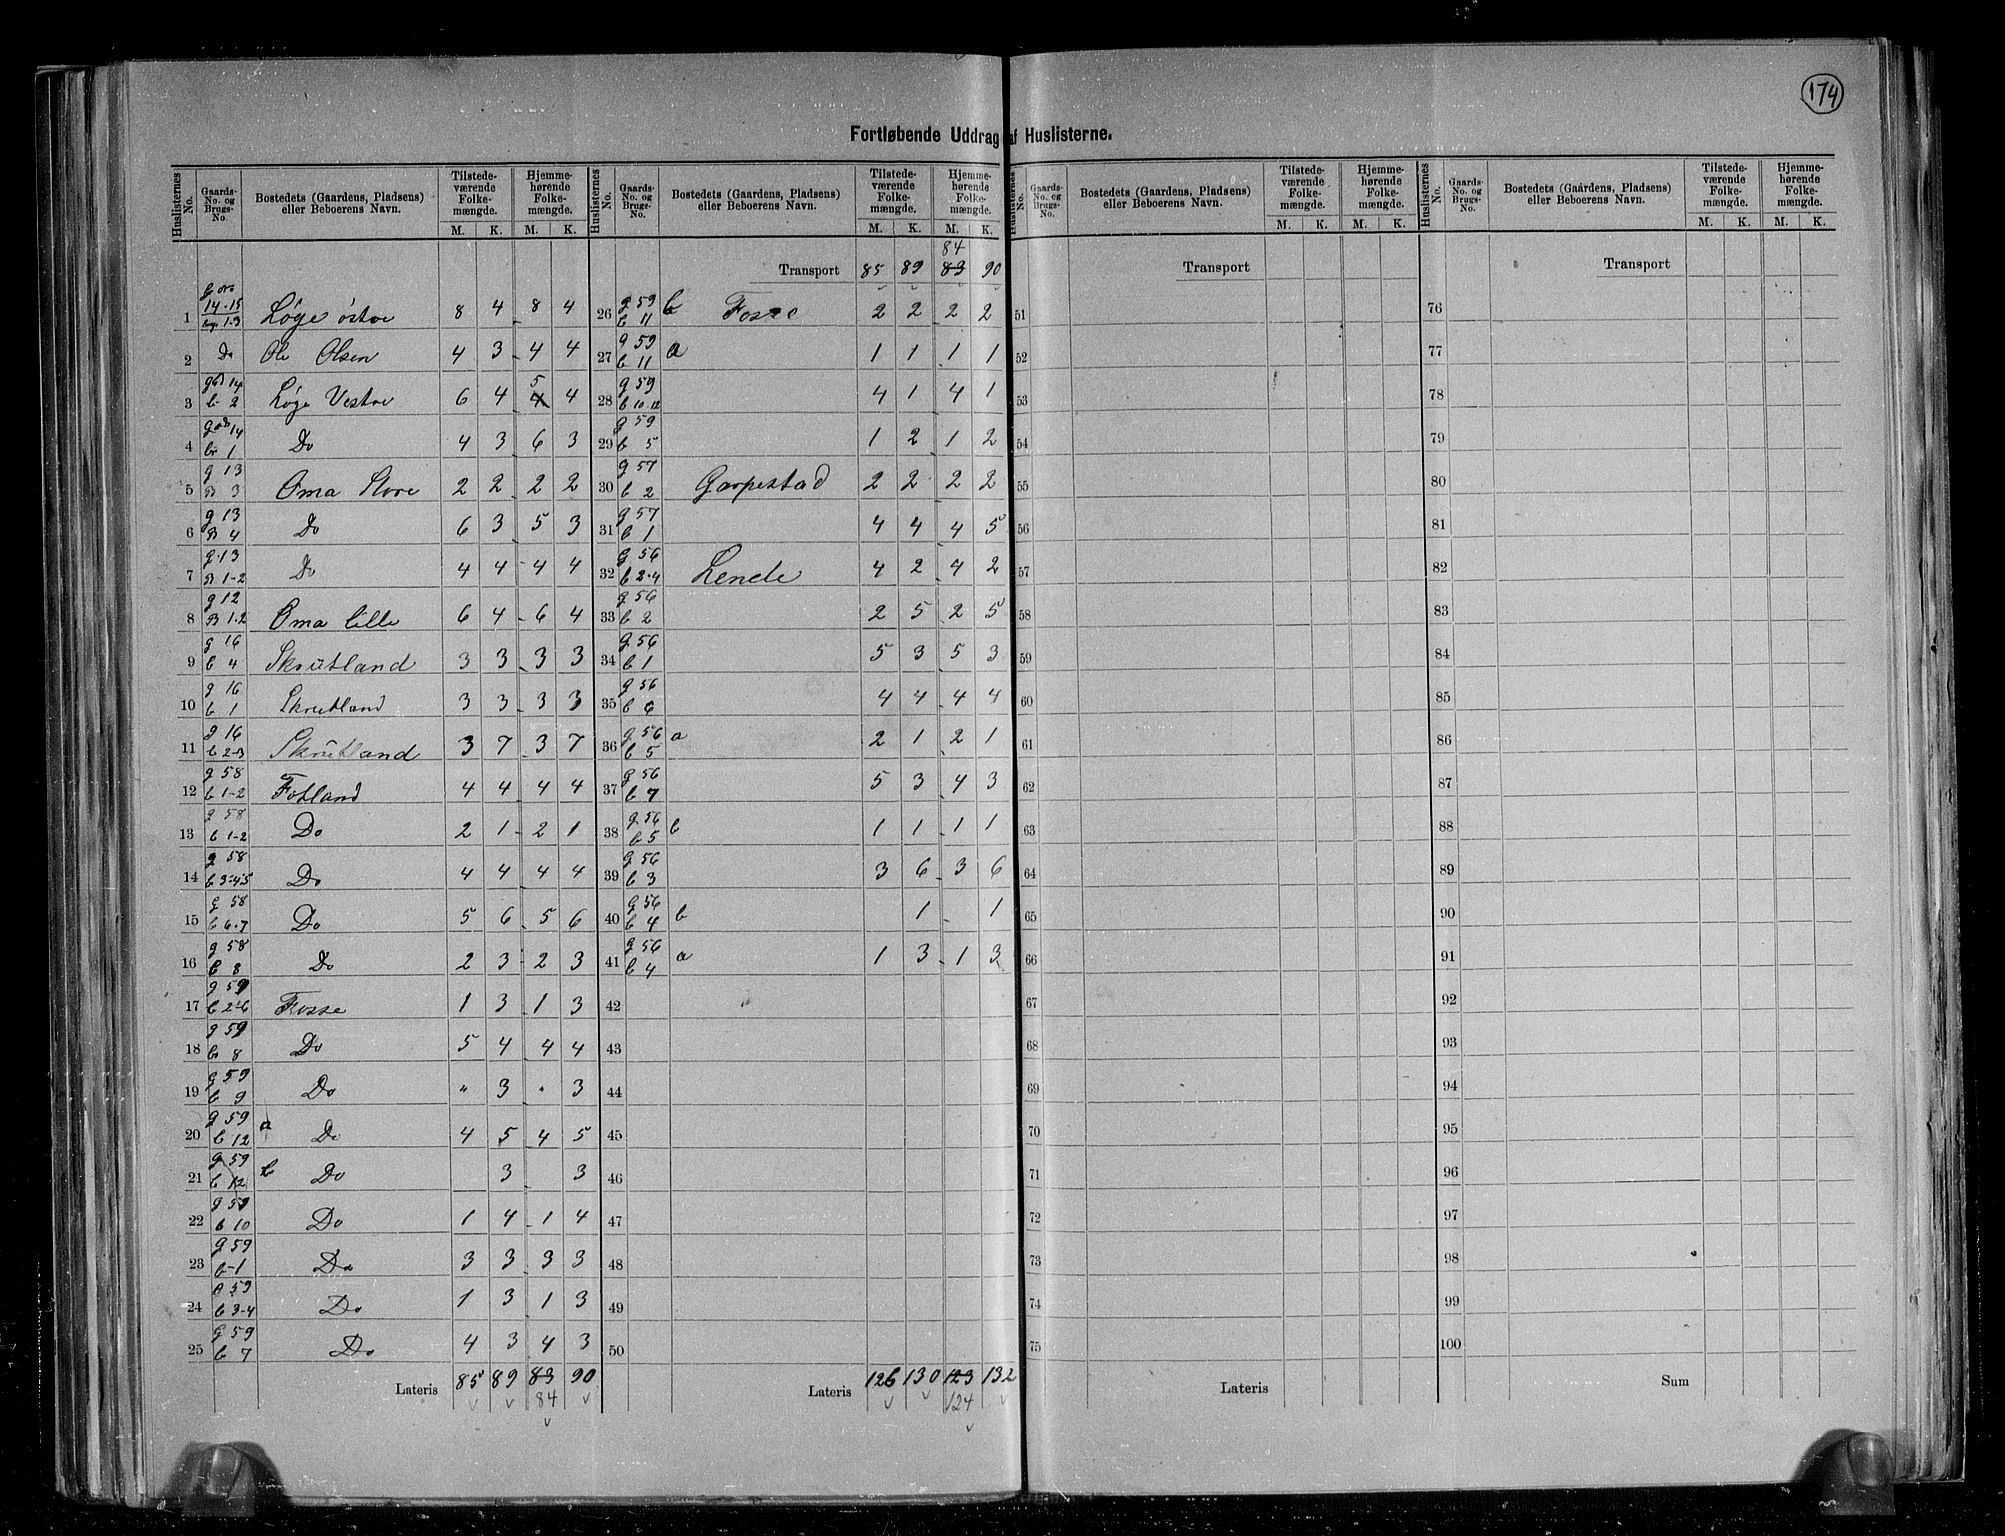 174
Fortløbende Uddrag af Huslisterne.
Huslisternes No. | Gaards-No. og Brugs-No. | Bostedets (Gaardens, Pladsens) eller Beboerens Navn. | Tilstedeværende Folkemængde. M. K. | Hjemmehørende Folkemængde. M. K.
1 14-15 1-3 Løge østre 8 4 8 4
2 Do Ole Olsen 4 3 4 4
3 14 b 2 Løge Vestre 6 4 4 5 4
4 14 b 1 Do 4 3 6 3
5 g 13 B 3 Oma Store 2 2 2 2
6 g 13 B 4 Do 6 3 5 3
7 g 13 B 1-2 Do 4 4 4 4
8 g 12 B 1-2 Oma lille 6 4 6 4
9 g 16 b 4 Skrutland 3 3 3 3
10 g 16 b 1 Skrutland 3 3 3 3
11 g 16 b 2-3 Skrutland 3 7 3 7
12 g 58 b 1-2 Fotland 4 4 4 4
13 g 58 b 1-2 Do 2 1 2 1
14 g 58 b 3-4-5 Do 4 4 4 4
15 g 58 b 6-7 Do 5 6 5 6
16 g 58 b 8 Do 2 3 2 3
17 g 59 b 2-6 Fosse 1 3 1 3
18 g 59 b 8 Do 5 4 4 4
19 g 59 b 9 Do " 3 " 3
20 g 59 b 12 a Do 4 5 4 5
21 g 59 b 12 b Do 3 3
22 g 59 b 10 Do 1 4 1 4
23 g 59 b 1 Do 3 3 3 3
24 59 b 3-4 Do 1 3 1 3
25 g 59 b 7 Do 4 3 4 3
Lateris 85 89 83 90
84
Huslisternes No. | Gaards-No. og Brugs-No. | Bostedets (Gaardens, Pladsens) eller Beboerens Navn. | Tilstedeværende Folkemængde. M. K. | Hjemmehørende Folkemængde. M. K.
84
Transport 85 89 83 90
26 g 59 b 11 b Fosse 2 2 2 2
27 g 59 b 11 a 1 1 1 1
28 g 59 b 10-12 4 1 4 1
29 g 59 b 5 1 2 1 2
30 g 57 b 2 Garpestad 2 2 2 2
31 g 57 b 1 4 4 4 5
32 g 56 b 2-4 Lende 4 2 4 2
33 g 56 b 2 2 5 2 5
34 g 56 b 1 5 3 5 3
35 g 56 b 6 4 4 4 4
36 g 56 b 5 a 2 1 2 1
37 g 56 b 7 5 3 4 3
38 g 56 b 5 b 1 1 1 1
39 g 56 b 3 3 6 3 6
40 g 56 b 4 b 1 1
41 g 56 b 4 a 1 3 1 3
42
43
44
45
46
47
48
49
50
Lateris 126 130 123 132
124
Huslisternes No. | Gaards-No. og Brugs-No. | Bostedets (Gaardens, Pladsens) eller Beboerens Navn. | Tilstedeværende Folkemængde. M. K. | Hjemmehørende Folkemængde. M. K.
Transport
51
52
53
54
55
56
57
58
59
60
61
62
63
64
65
66
67
68
69
70
71
72
73
74
75
Lateris
Huslisternes No. | Gaards-No. og Brugs-No. | Bostedets (Gaardens, Pladsens) eller Beboerens Navn. | Tilstedeværende Folkemængde. M. K. | Hjemmehørende Folkemængde. M. K.
Transport
76
77
78
79
80
81
82
83
84
85
86
87
88
89
90
91
92
93
94
95
96
97
98
99
100
Sum